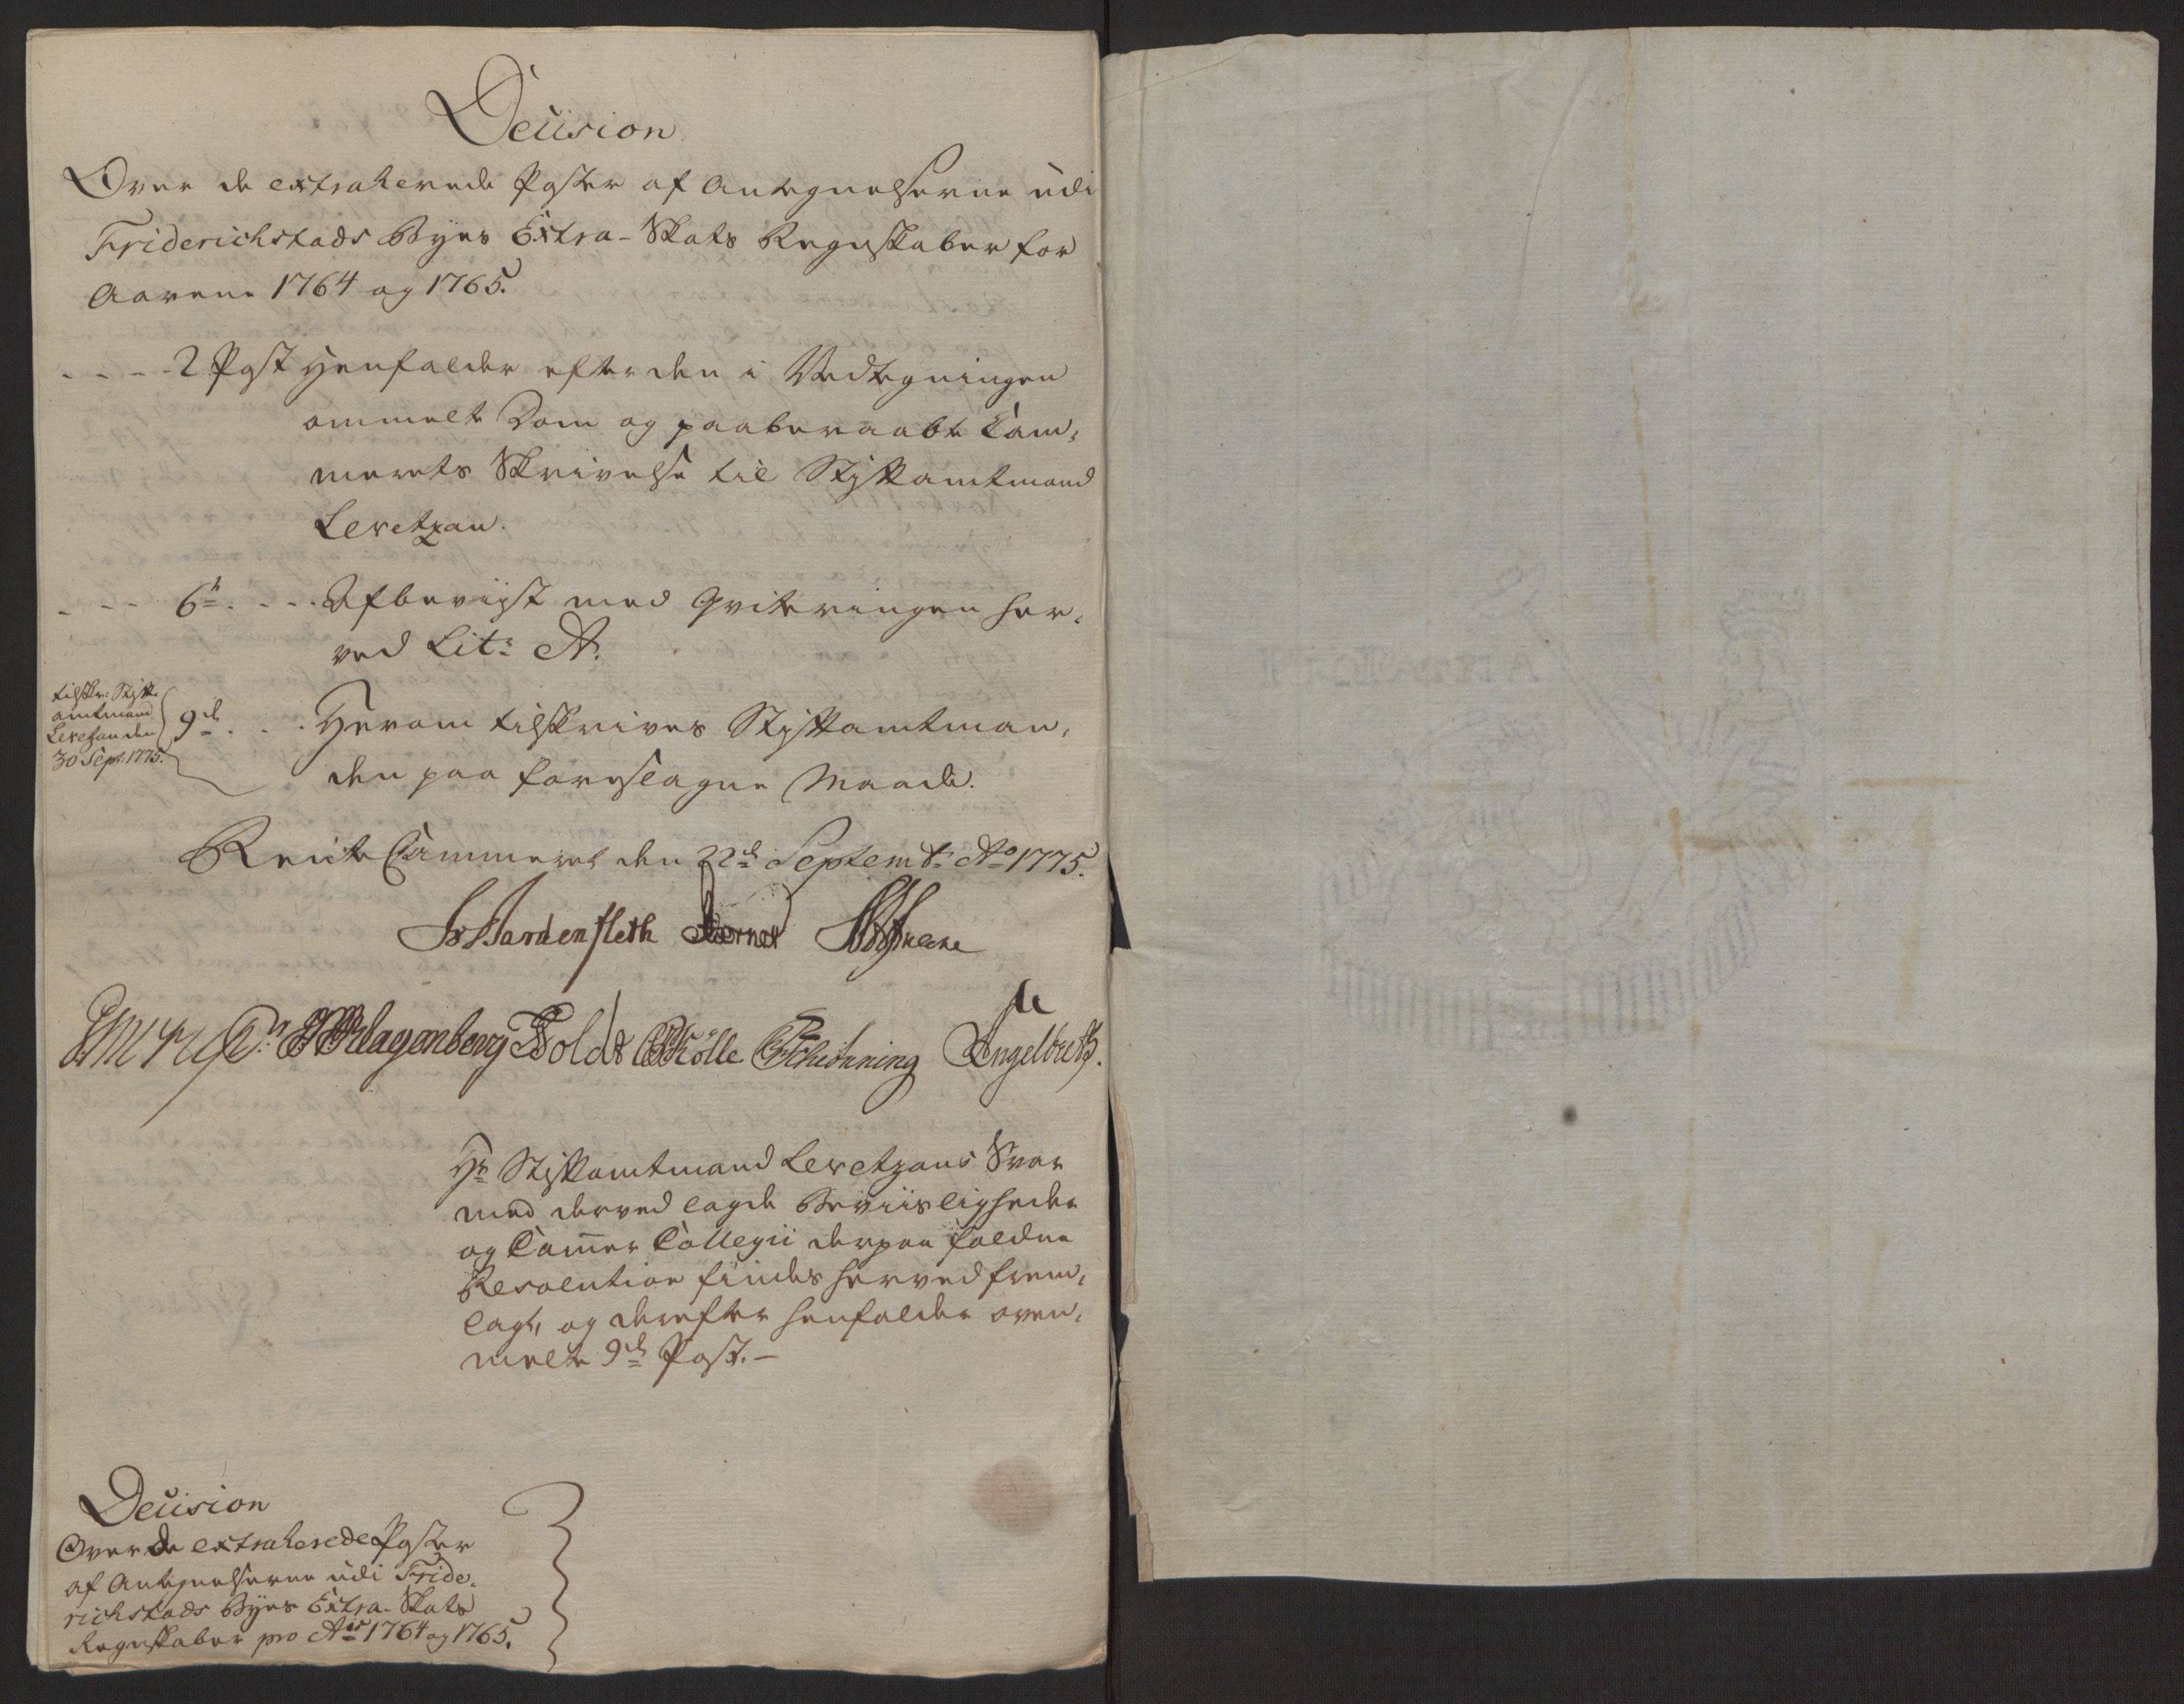 Decision
Over de extraherede Poster af Antegnelserne udi
Friderichstads Byes Extra-Skats Regnskaber for
Aarene 1764 og 1765.
- - - - 2 Post Henfalder efter den i Vedtegningen
ommelte Dom og paaberaabte Cam-
merets Skrivelse til Stiftamtmand
Levetzau.
- - - 6te. - - - Afbeviist med Qviteringen her-
ved Litr: A.
tilskr: Stift-
amtmand
Levetzau den
30 Sept: 1775.
9de. . . . Herom tilskrives Stiftamtman-
den paa foreslagne Maade.
RenteCammeret den 22de Septembr: Ao 1775.
Vardenfleth
Klagenberg Holdt Kölle Schiönning Engelbret.
Hr Stiftamtmand Levetzaus Svar
med derved lagde Beviisligheder
og Cammer Collegii derpaa faldne
Resolution findes herved frem-
lagt, og derefter henfalder oven-
melte 9de Post. -
Decision
Over de extraherede Poster
af Antegnelserne udi Fride-
richstads Byes Extra-Skats
Regnskaber pro Ais 1764 og 1765.